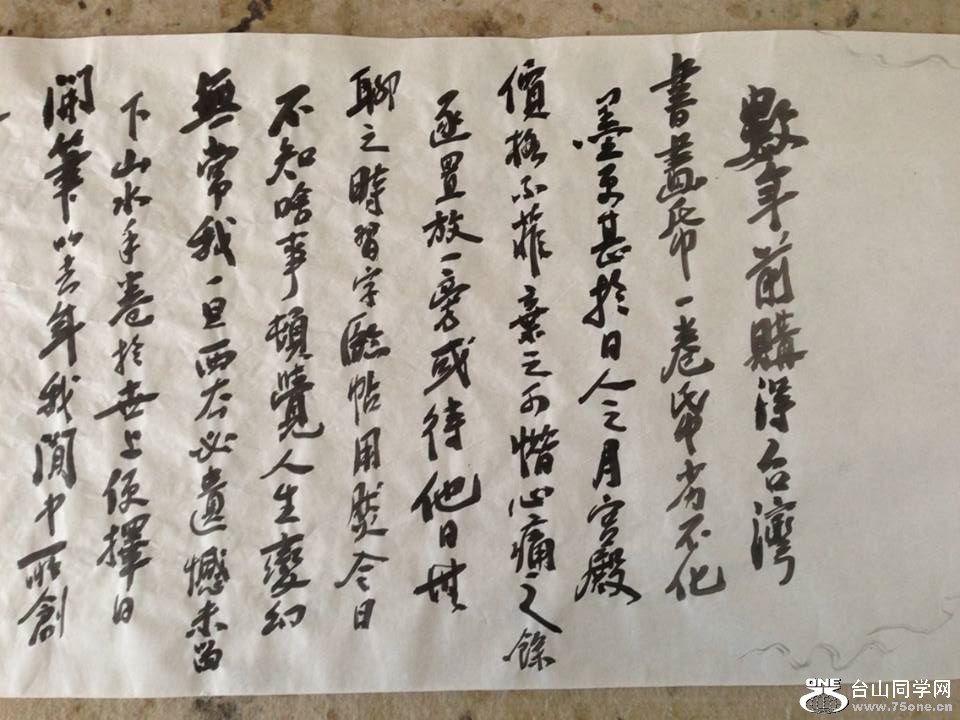 數年前購得台灣
書畫帋一卷帋劣不化
墨更甚於日人之月宮殿
價格不菲棄之可惜心痛之餘
逐置放一旁或待他日無
聊之時習字臨帖用然今日
不知啥事頓覺人生變幻
無常我一旦西去必遺憾未留
下山水手卷於世上便擇日
開筆以去年我閒中所創
ONE 台山同学网
www.75one.cn